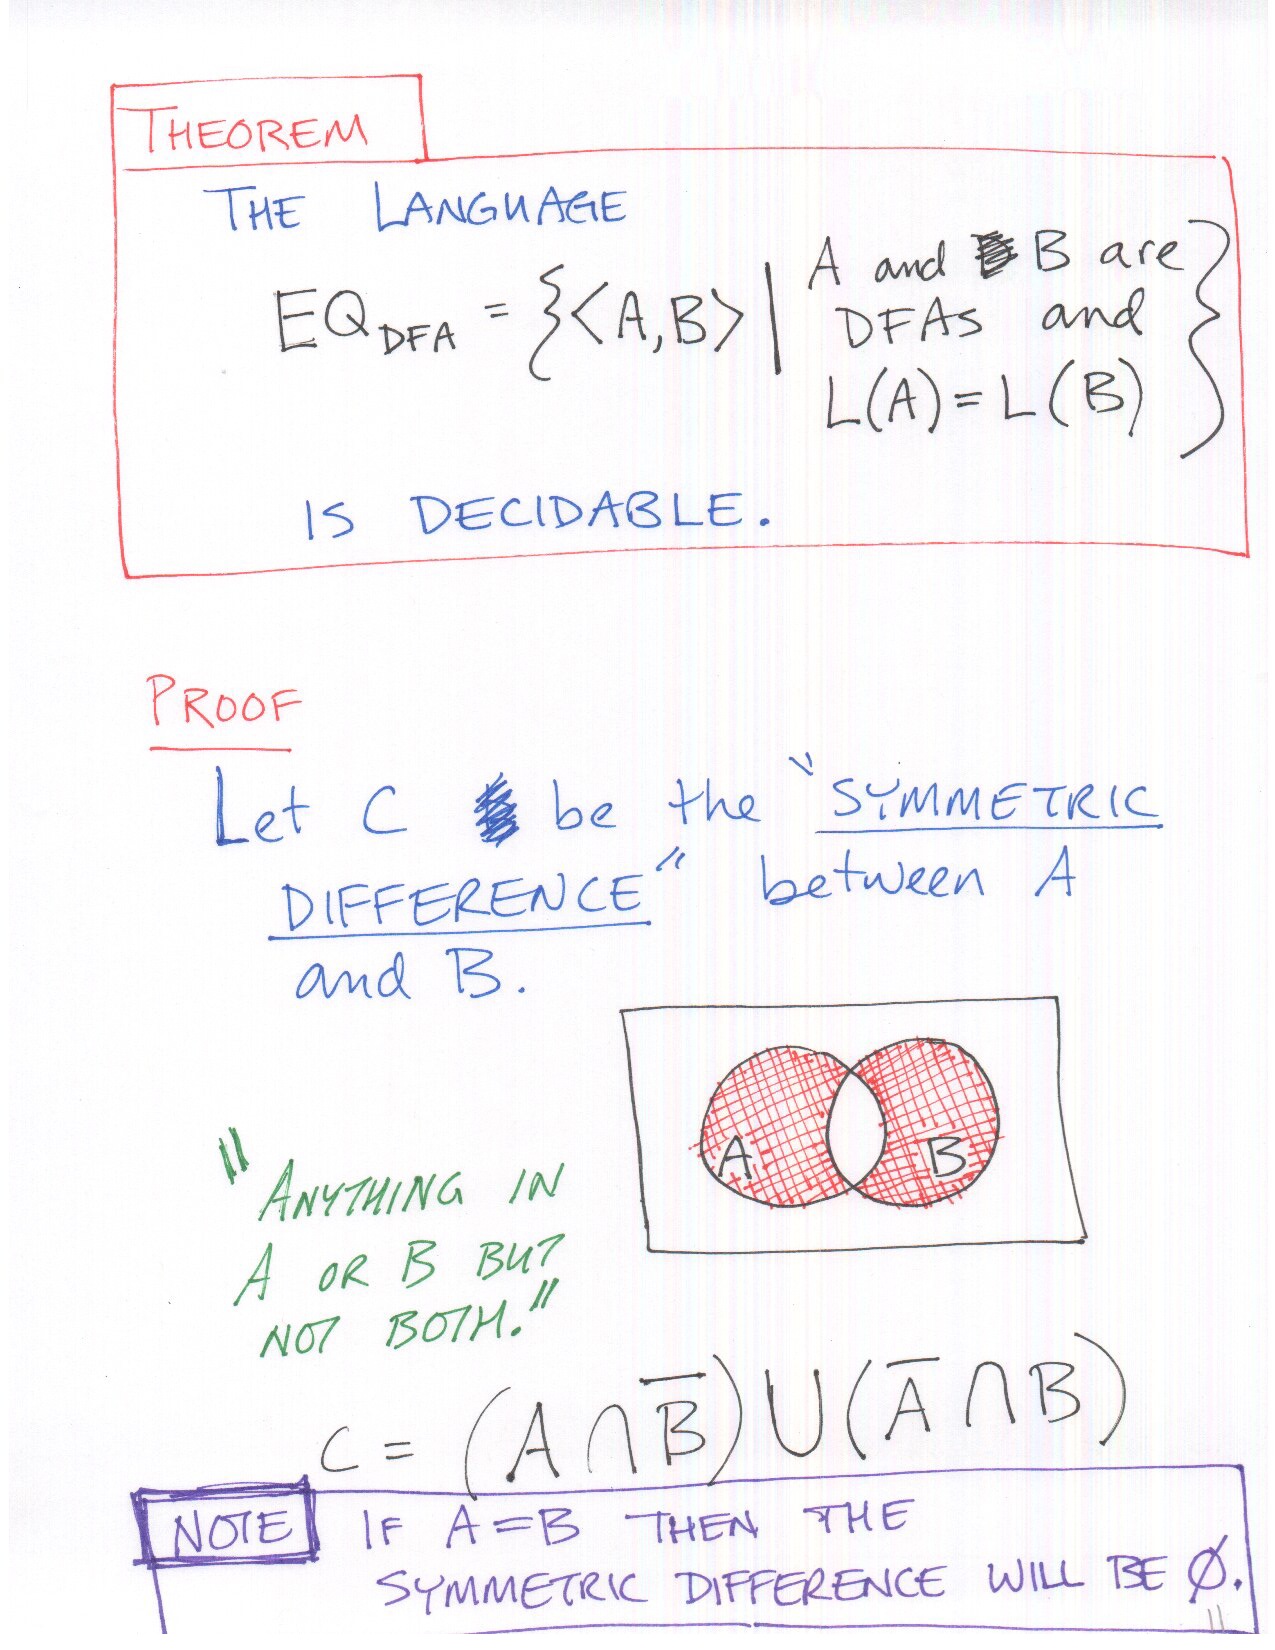 THEOREM
THE LANGUAGE
EQ_DFA = {<A,B> | A and B are
DFAs and
L(A) = L(B) }
IS DECIDABLE.
PROOF
Let C be the "SYMMETRIC
DIFFERENCE" between A
and B.
A B
"ANYTHING IN
A OR B BUT
NOT BOTH."
C = (A ∩ B̅) ∪ (A̅ ∩ B)
NOTE IF A=B THEN THE
SYMMETRIC DIFFERENCE WILL BE Ø.
11